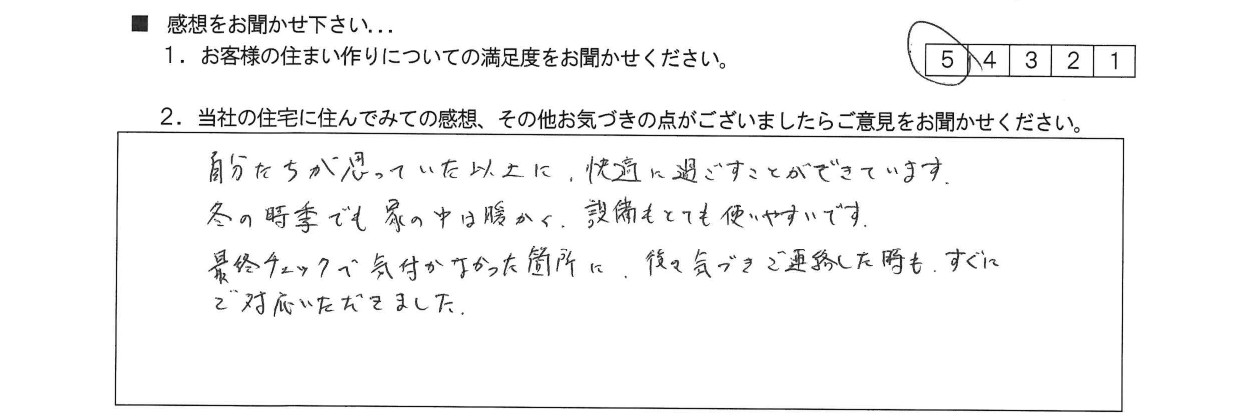 ■ 感想をお聞かせ下さい...
1. お客様の住まい作りについての満足度をお聞かせください。
5 4 3 2 1
2. 当社の住宅に住んでみての感想、その他お気づきの点がございましたらご意見をお聞かせください。
自分たちが思っていた以上に、快適に過ごすことができています。
冬の時季でも家の中は暖かく、設備もとても使いやすいです。
最終チェックで気付かなかった箇所に、後々気づきご連絡した時も、すぐに
ご対応いただきました。